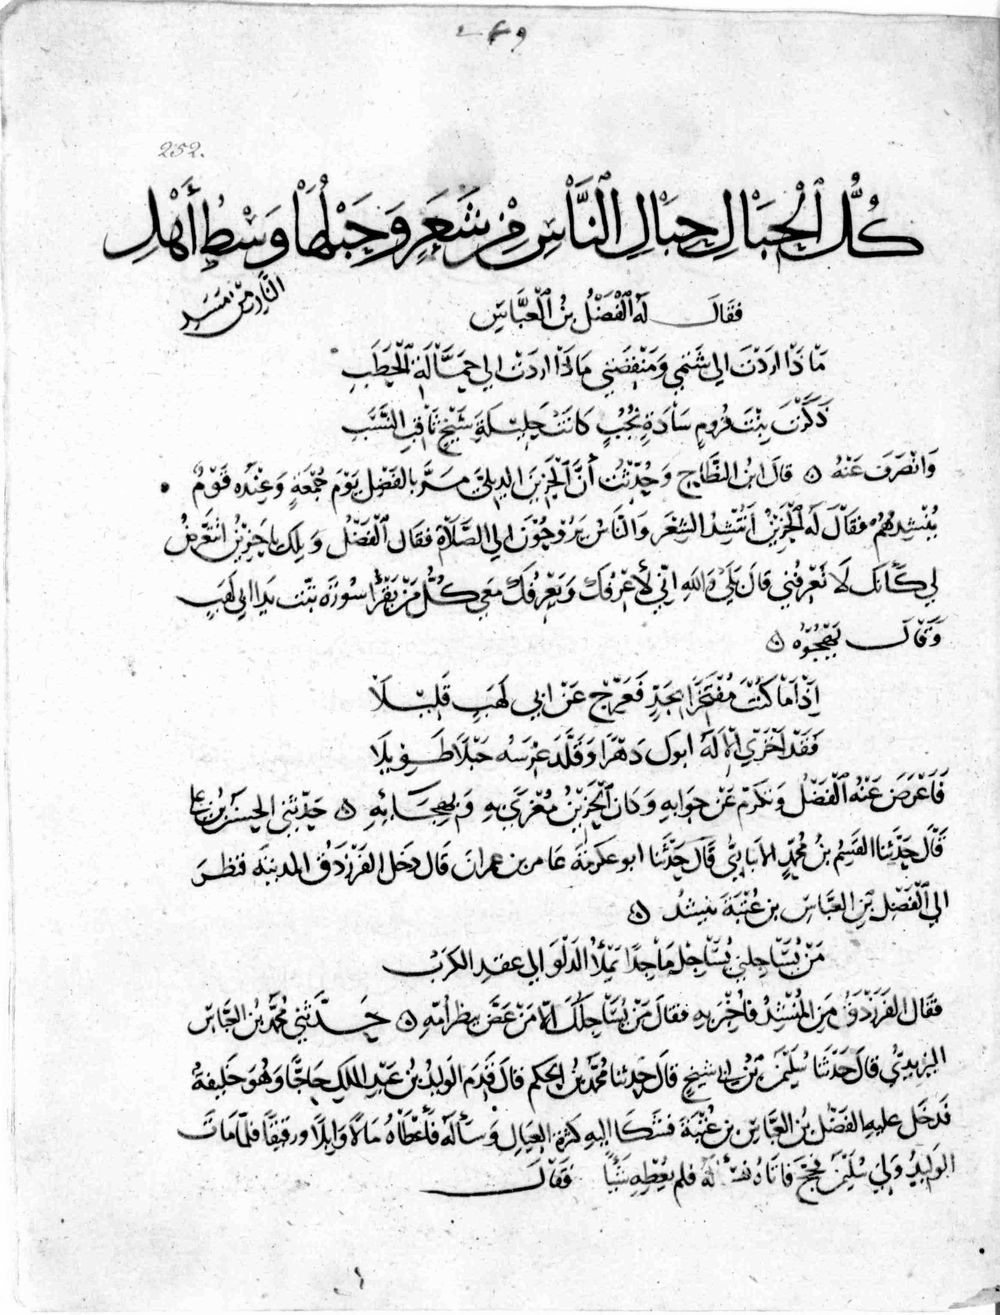 ٢٤٩
252.
كُلُّ ٱلْحِبَالِ حِبَالِ ٱلنَّاسِ مِنْ شَعَرٍ وَحَبْلُهَا وَسْطَ أَهْلِ
النَّارِ مِنْ مَسَدِ
فقال لَهُ ٱلْفَضْلُ بْنُ ٱلْعَبَّاسِ
مَاذَا اردْتَ الى شَتْمِي وَمَنْقَصَتِي مَاذَا اردْتَ الى حَمَّالَةِ ٱلْحَطَبِ
ذَكَرْتَ بِنْتَ قُرُومٍ سَادَةٍ نُجُبٍ كَانَتْ حَلِيلَةَ شَيْخٍ ثَاقِبِ النَّسَبِ
وَانْصَرَفَ عَنْهُ ۞ قَالَ ابن النطَّاح وَحُدِّثْتُ أَنَّ ٱلْحَزِينَ الدِيلِيَّ مَرَّ بِالفَضْلِ يَوْمَ جُمْعَةٍ وَعِنْدَه قَوْمٌ
يُنْشِدُهُمْ فَقَالَ لَهُ ٱلْحَزِينُ أَتُنْشِدُ الشِعْرَ وَالنَّاسُ يَرُوحُوْنَ الى الصَّلَاةِ فَقَالَ ٱلْفَضْلُ وَيْلك يا حَزِينُ اتتَعَرَّضُ
لي كَأَنَكَ لَا تَعْرِفُنِي قَالَ بَلَى وَاللهِ انِّي لأَعْرِفُكَ وَيَعْرِفُكَ مَعِي كُلُّ مَنْ يَقْرَأُ سُورَة تبّت يدا ابي لهبٍ
وَقَالَ يَهْجُوْه ۞
اذَا مَا كُنْتَ مُفْتَخِرًا بِجَدٍّ فَعَرِّجْ عَنْ ابي لَهَبٍ قَلِيْلَا
فَقَدْ اَخْزَى الإلَهُ ابوكَ دَهْرًا وَقَلَّدَ عِرْسَهُ حَبْلًا طَوِيلَا
فَاَعْرَضَ عَنْهُ ٱلْفَضْلُ وَتَكَرَّمَ عَنْ جَوَابِهِ وَكَانَ ٱلْحَزِينُ مُغْرًى بِهِ وَبِهِجَائِهِ ۞ حَدَّثَنِي الحسن بن علي
قَالَ حَدَّثَنَا القَسِمُ بْنُ مُحَمَّدٍ الأَنْبَارِيُّ قَالَ حَدَّثَنَا ابو عكرمَةَ عَامر بن عمرانَ قَالَ دَخل الفَرَزْدَقُ المدينَة فنظَرَ
الى ٱلْفَضْلِ بْنِ العَبَّاسِ بنِ عُتْبَةَ ينشدُ ۞
مَنْ يُسَاجِلني يُسَاجِل مَاجِدًا يَمْلَأُ الدَّلْوَ الى عَقدِ الكَرَبْ
فَقَال الفَرَزْدَقُ مَنِ المُنْشِدُ فَأُخْبِرَ بِهِ فقالَ مَنْ يُسَاجِلُكَ الّا مَنْ عَضَّ بِظرِ اُمِّهِ ۞ حَدَّثَنِي مُحَمَّدُ بْنُ العَبَّاسِ
اليزيديُّ قَالَ حَدَّثَنَا سُلَيْمَنُ بْنُ ابي شيخٍ قَالَ حَدثنا مُحَمَّدُ بْنُ الحكم قال قَدِمَ الوَلِيدُ بْنُ عَبْدِ المَلِكِ حَاجًّا وَهُوَ خَلِيفَةٌ
فدَخَلَ عليهِ الفَضْلُ بْنُ العَبَّاسِ بْنِ عُتْبَةَ فشكَا اليهِ كثرَةَ العِيَالِ وَسَأَلَهُ فَأَعْطَاهُ مَالًا وَابِلًا ورقِيقًا فلَمَّا مَاتَ
الوَليدُ وَليَ سُلَيْمَنُ فحَجَّ فأتَاهُ فَسَأَلَهُ فلم يُعْطِهِ شَيْئًا فَقَالَ